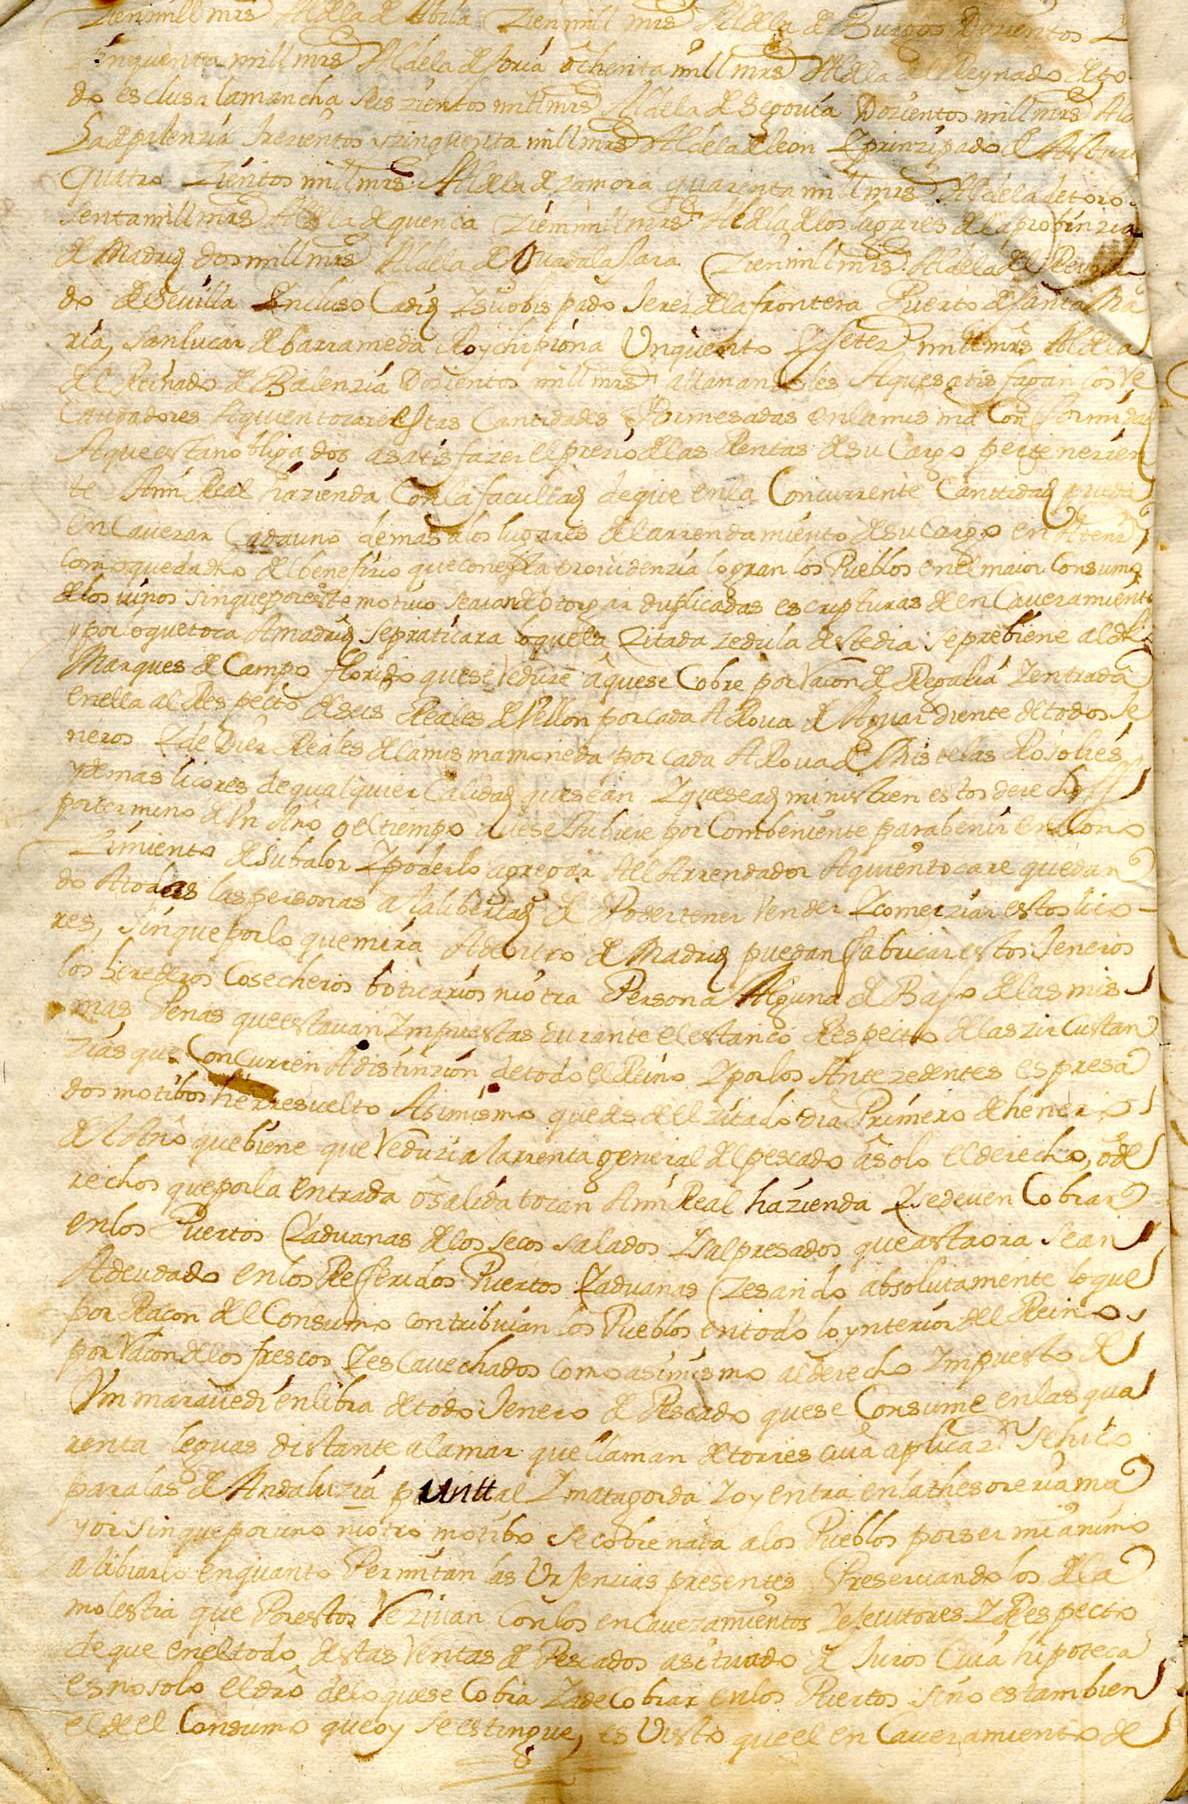 zien mill mrs Al de la de Abila zien mill mrs Al de la de Burgos Dozientos y
zinquenta mill mrs Al de la de soria ochenta mill mrs Al de la del Reynado de to
do esclusa la mancha seis zientos mill mrs Al de la de Segovia Dozientos mill mrs Al de
la de palenzia trezientos y zinquenta mill mrs Al de la de leon y prinzipado de Astur
quatro zientos mill mrs Al de la de zamora quarenta mill mrs Al de la de toro
senta mill mrs Al de la de quenca zien mill mrs Al de la de los lugares de la probinzia
de Madrid dos mill mrs Al de la de Guadalajara zien mill mrs Al de la del Reyna
do de Sevilla Incluso Cadiz y su obispado Jerez de la frontera Puerto de Santa Ma
ria, san lucar de barrameda Roy chipiona Un quento y setez mill mrs Al de la
del Reinado de Balenzia Dozientos mill mrs allanandoles A que satisfagan los Re
Caudadores A quien tocare estas Cantidades Por mesadas en la misma Conformidad
A que estan obligados a satisfazer el prezio de las Rentas de su Cargo pertenezien
te A mi Real hazienda Con la facultad de que en la Concurrente Cantidad pueda
en Cavezar Cada uno demas a los lugares del arrendamiento de su cargo en Atenz
como queda dho del benefizio que con esta providenzia logran los Pueblos en el maior Consumo
de los vinos sin que por este motivo se aian de otorgar duplicadas escripturas de en Cavezamiento
y por lo que toca A madrid se praticara lo que en la zitada zedula de este dia se prebiene al de
Marques de Campo florido que se Reduze a que se Cobre por Razon de Regalia y entrada
en ella al Respecto de seis Reales de Vellon por cada ARova de Aguardiente de todos Je
neros y de Diez Reales de la misma moneda por cada ARova de Mistelas Rosolies
y demas licores de qualquier calidad que sean y que se administren estos derechos
por termino de Un Año o el tiempo que se tubiere por Combeniente para benir en Cono
zimiento de su balor y poderlo agregar Al Arrendador A quien tocare quedan
do A todas las personas a la libertad de Poder tener Vender y comerziar estos lico
res, sin que por lo que mira A dentro de Madrid puedan fabricar estos Jeneros
los herederos Cosecheros boticarios ni otra Persona Alguna de Bajo de las mis
mas Penas que estavan Impuestas durante el estanco Respecto de las zircustan
zias que Concurren A distinzion de todo el Reino y por los Antezedentes espresa
dos motibos he rresuelto Asimismo que desde el zitado dia Primero de henero
del Año que biene que Reduzia la rrenta general del pescado a solo el derecho, o de
rechos que por la entrada o salida tocan A mi Real hazienda y se deven Cobrar
en los Puertos y aduanas de los secos salados y salpresados que asta ora sean
Adeudado en los Referidos Puertos y aduanas zesando absolutamente lo que
por Razon del Consumo contribuian los Pueblos en todo lo ynterior del Reino
por Razon de los frescos y escavechados como asimismo al derecho Impuesto de
Un maravedi en libra de todo Jenero de Pescado que se Consume en las qua
renta leguas distante a la mar que llaman de torres cuia aplicazn se hizo
para las de Andaluzia puntal y matagorda y oy entra en la thesoreria ma
yor sin que por uno ni otro motibo se cobre nada a los Pueblos por ser mi animo
alibiarlos en quanto Permitan las Urjenzias presentes Preservandolos de la
molestia que Por estos Reziban Con los en Cavezamientos y ejecutores y Respecto
de que en el todo de estas Rentas de Pescados a situado de Juros Cuia hipoteca
es no solo el dro de lo que se Cobra y a de Cobrar en los Puertos sino es tambien
el de el Consumo que oy se estingue, es Visto que el en Cavezamiento de